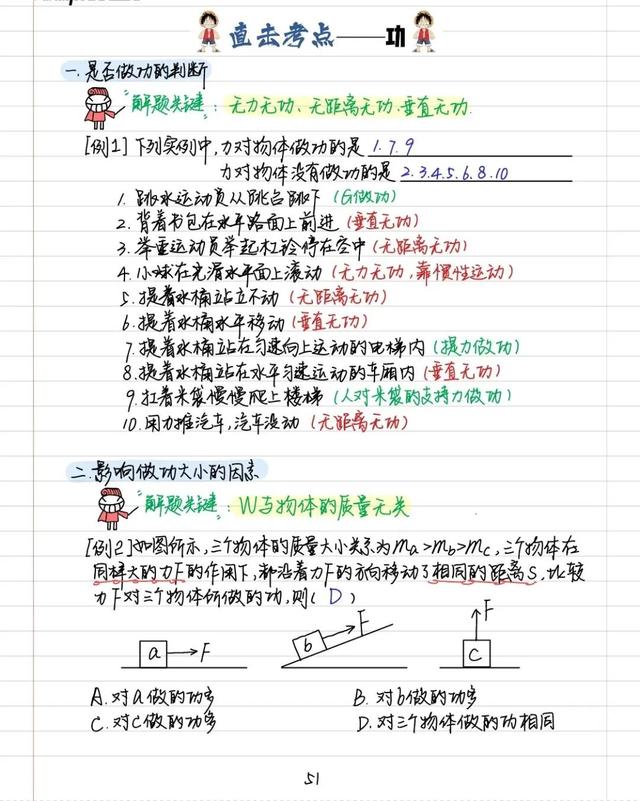 直击考点——功
一.是否做功的判断
解题关键：无力无功、无距离无功.垂直无功.
[例1]下列实例中,力对物体做功的是 1.7.9
力对物体没有做功的是 2.3.4.5.6.8.10
1.跳水运动员从跳台跳下(G做功)
2.背着书包在水平路面上前进(垂直无功)
3.举重运动员举起杠铃停在空中(无距离无功)
4.小球在光滑水平面上滚动(无力无功,靠惯性运动)
5.提着水桶站立不动(无距离无功)
6.提着水桶水平移动(垂直无功)
7.提着水桶站在匀速向上运动的电梯内(提力做功)
8.提着水桶站在水平匀速运动的车厢内(垂直无功)
9.扛着米袋慢慢爬上楼梯(人对米袋的支持力做功)
10.用力推汽车,汽车没动(无距离无功)
二.影响做功大小的因素
解题关键：W与物体的质量无关
[例2]如图所示,三个物体的质量大小关系为ma>mb>mc,三个物体在
同样大的力F的作用下,都沿着力F的方向移动了相同的距离S,比较
力F对三个物体所做的功,则(D)
a F
b F
c F
A.对a做的功多 B.对b做的功多
C.对c做的功多 D.对三个物体做的功相同
51